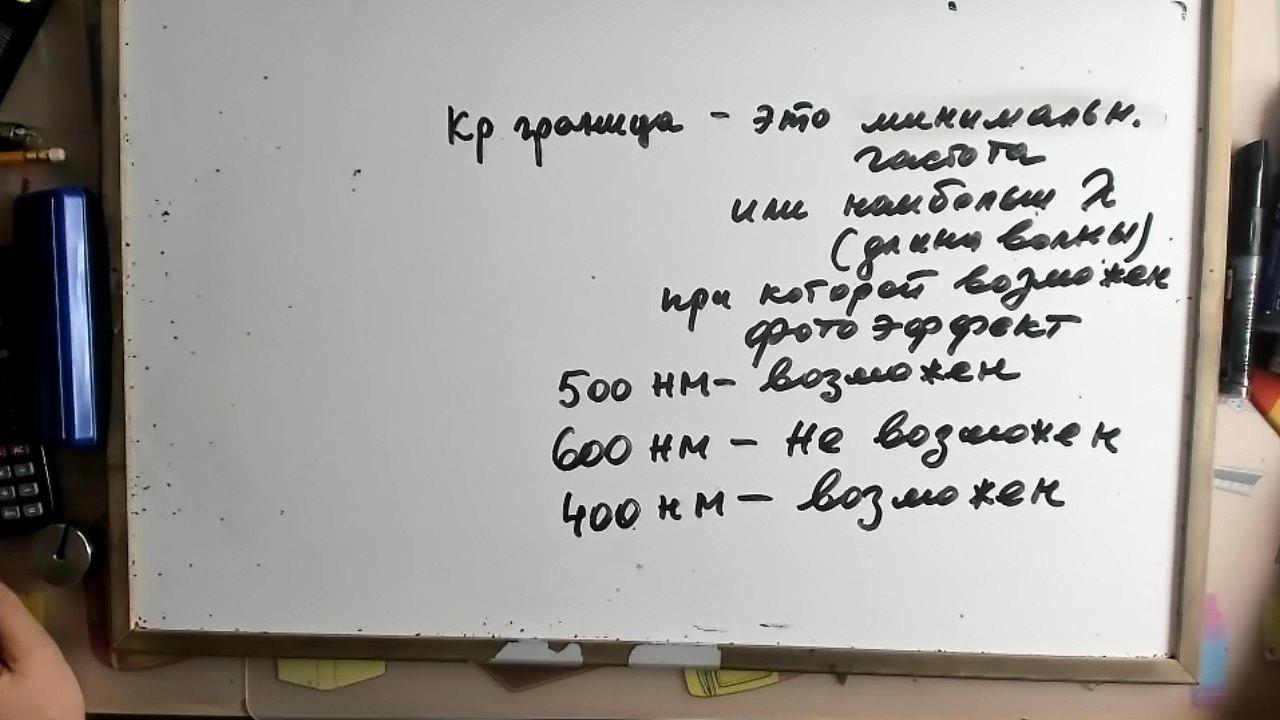 Кр граница - это минимальн.
частота
или наибольш λ
(длина волны)
при которой возможен
фотоэффект
500 нм- возможен
600 нм - не возможен
400 нм - возможен